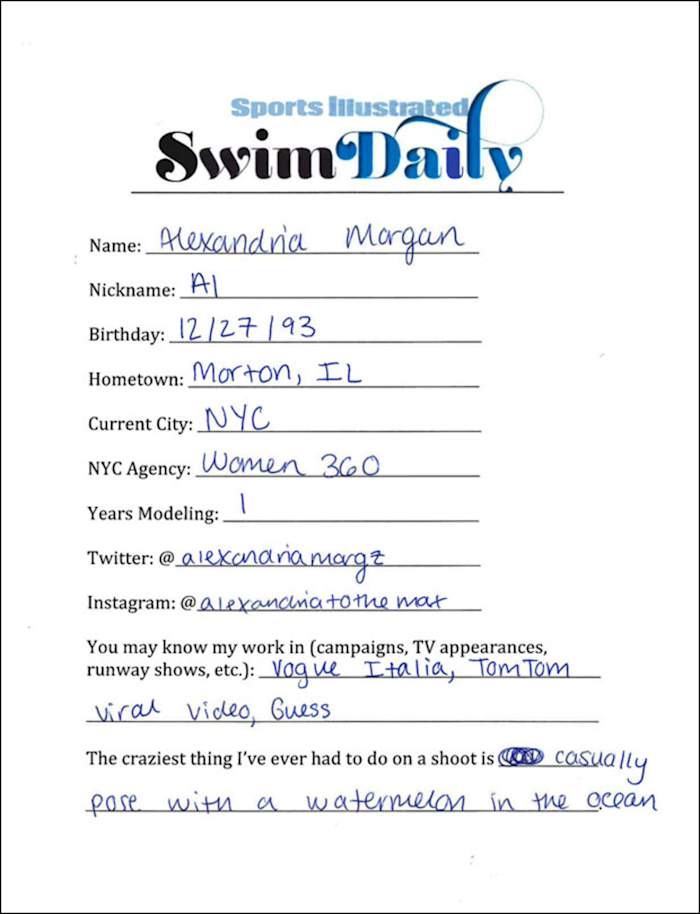 Sports Illustrated
Swim Daily
Name: Alexandria Morgan
Nickname: Al
Birthday: 12/27/93
Hometown: Morton, IL
Current City: NYC
NYC Agency: Women 360
Years Modeling: 1
Twitter: @ alexandriamorgz
Instagram: @ alexandriatothemax
You may know my work in (campaigns, TV appearances,
runway shows, etc.): Vogue Italia, TomTom
viral video, Guess
The craziest thing I've ever had to do on a shoot is casually
pose with a watermelon in the ocean